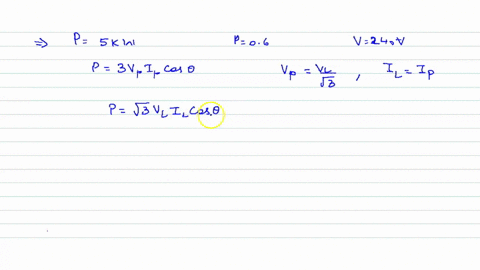 ⇒ P = 5 KW P = 0.6 V = 240V
P = 3 Vp Ip Cos θ Vp = VL/√3 , IL = Ip
P = √3 VL IL Cos θ